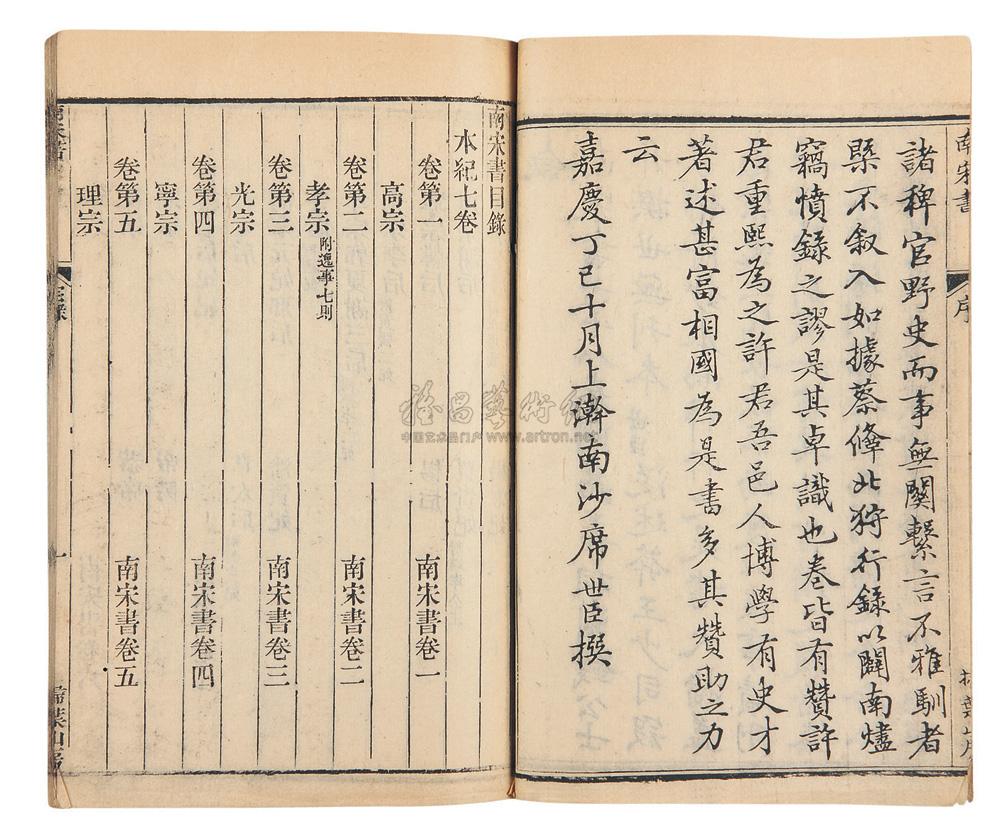 南宋書
序
諸稗官野史而事無關繫言不雅馴者
槩不叙入如據蔡絛北狩行錄以闢南燼
竊憤錄之謬是其卓識也卷皆有贊許
君重熙為之許君吾邑人博學有史才
著述甚富相國為是書多其贊助之力
云
嘉慶丁巳十月上澣南沙席世臣撰
南宋書目錄
本紀七卷
卷第一 南宋書卷一
高宗
卷第二 南宋書卷二
孝宗 附逸事七則
卷第三 南宋書卷三
光宗
卷第四 南宋書卷四
寧宗
卷第五 南宋書卷五
理宗
一
中国艺术品门户 www.artron.net